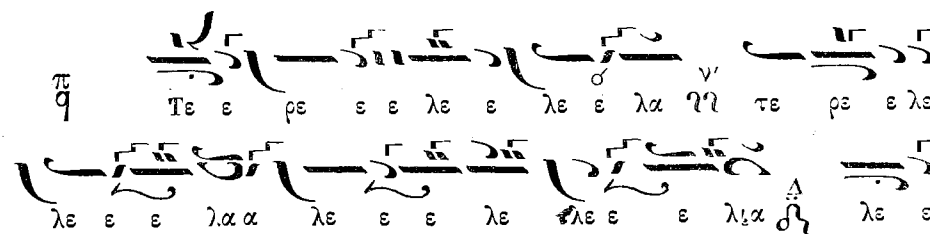 π
q Τε ε ρε ε ε λε ε λε ε λα ν' τε ρε ε λε
λε ε ε λα α λε ε ε λε λε ε ε λια Δ λε ε